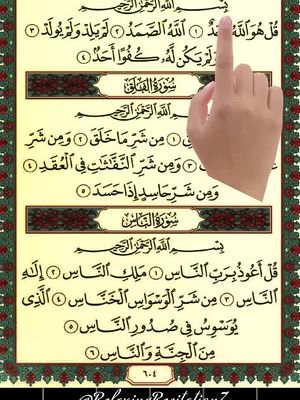 بِسْمِ ٱللَّهِ ٱلرَّحْمَٰنِ ٱلرَّحِيمِ
قُلْ هُوَ ٱللَّهُ ١ ٱللَّهُ ٱلصَّمَدُ ٢ لَمْ يَلِدْ وَلَمْ يُولَدْ ٣
وَلَمْ يَكُن لَّهُۥ كُفُوًا أَحَدٌۢ ٤
سُورَةُ ٱلْفَلَقِ
بِسْمِ ٱللَّهِ ٱلرَّحْمَٰنِ ٱلرَّحِيمِ
١ مِن شَرِّ مَا خَلَقَ ٢ وَمِن شَرِّ
٣ وَمِن شَرِّ ٱلنَّفَّٰثَٰتِ فِى ٱلْعُقَدِ ٤
وَمِن شَرِّ حَاسِدٍ إِذَا حَسَدَ ٥
سُورَةُ ٱلنَّاسِ
بِسْمِ ٱللَّهِ ٱلرَّحْمَٰنِ ٱلرَّحِيمِ
قُلْ أَعُوذُ بِرَبِّ ٱلنَّاسِ ١ مَلِكِ ٱلنَّاسِ ٢ إِلَٰهِ
ٱلنَّاسِ ٣ مِن شَرِّ ٱلْوَسْوَاسِ ٱلْخَنَّاسِ ٤ ٱلَّذِى
يُوَسْوِسُ فِى صُدُورِ ٱلنَّاسِ ٥
مِنَ ٱلْجِنَّةِ وَٱلنَّاسِ ٦
٦٠٤
@RelaxingRecitation7